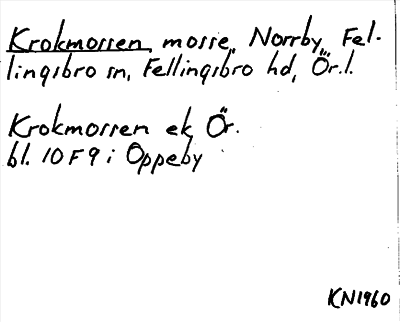 Krokmossen, mosse, Norrby, Fel-
lingsbro sn, Fellingsbro hd, Ör.l.
Krokmossen ek, Ör.
bl. 10 F 9 i Oppeby
KN1960